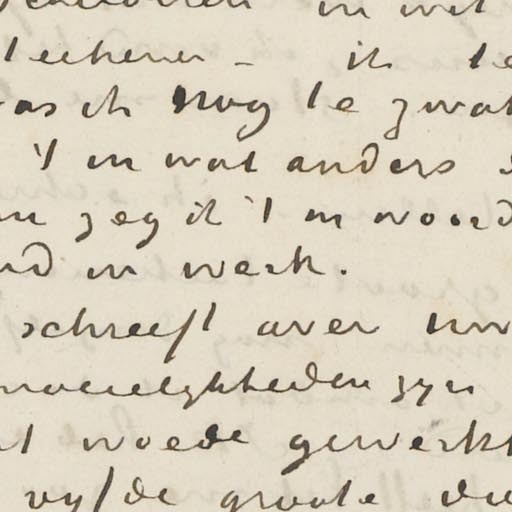 teekenen – ik te
was ik nog te zwak
't in wat anders
zeg ik 't in woord
in werk.
schreeft over uw
moeielykheden zyn
woede gewerkt
vyfde groote